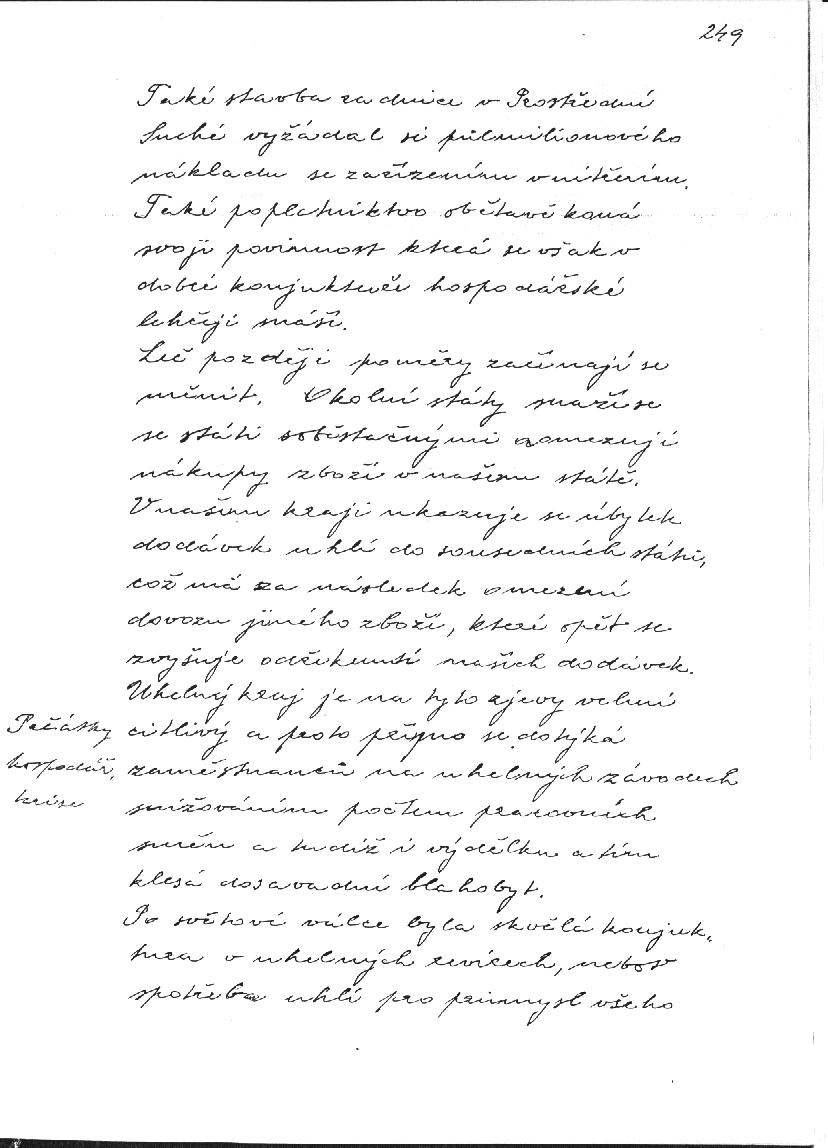 249
Také stavba radnice v Prostřední
Suché vyžádal si půlmilionového
nákladu se zařízením vnitřním.
Také poplatnictvo obětavě koná
svoji povinnost která se však v
dobré konjuktuře hospodářské
lehčeji snáší.
Leč později poměry začínají se
měnit. Okolní státy snaží se
se státi soběstačnými a omezují
nákupy zboží v našem státě.
V našem kraji ukazuje se úbytek
dodávek uhlí do sousedních států,
což má za následek omezení
dovozu jiného zboží, které opět se
zvyšuje odřeknutí našich dodávek.
Uhelný kraj je na tyto zjevy velmi
Počátky
hospodář.
krise
citlivý a proto přímo se dotýká
zaměstnanců na uhelných závodech
snižováním počtem pracovních
směn a tudíž i výdělku a tím
klesá dosavadní blahobyt.
Po světové válce byla skvělá konjuk-
tura v uhelných revírech, neboť
spotřeba uhlí pro průmysl všeho